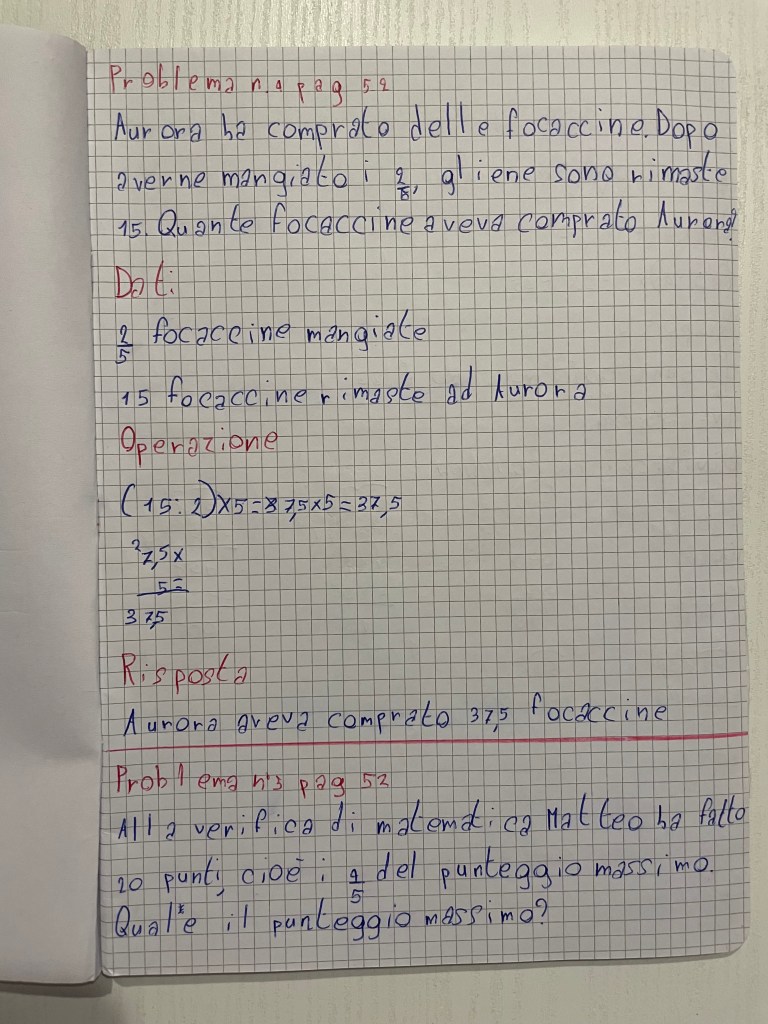 Problema n.4 pag 52
Aurora ha comprato delle focaccine. Dopo
averne mangiato i 2/5, gliene sono rimaste
15. Quante focaccine aveva comprato Aurora?
Dati:
2/5 focaccine mangiate
15 focaccine rimaste ad Aurora
Operazione
(15:2)x5=7,5x5=37,5
²7,5x
5=
37,5
Risposta
Aurora aveva comprato 37,5 focaccine
Problema n°3 pag 52
Alla verifica di matematica Matteo ha fatto
20 punti, cioè i /5 del punteggio massimo.
Qual'è il punteggio massimo?